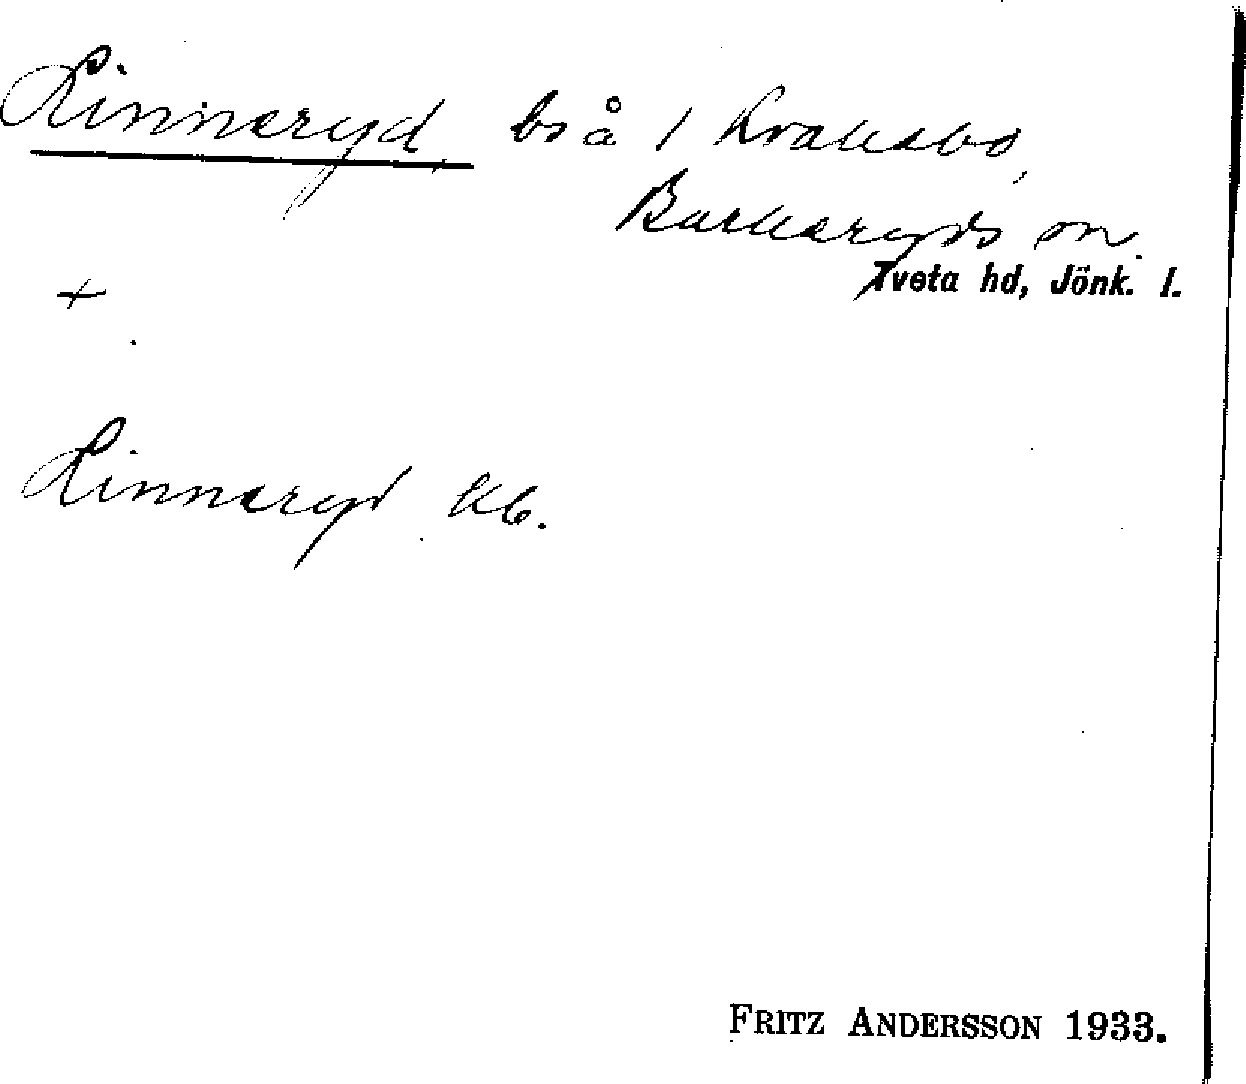 Linneryd bs å 1 Kråkebo,
Barkeryds sn.
Tveta hd, Jönk. l.
+
Linneryd kb.
FRITZ ANDERSSON 1933.